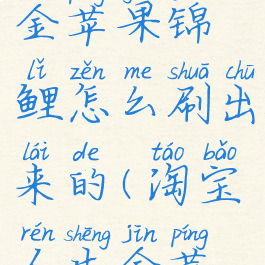 金苹果锦
lǐ zěn me shuā chū
鲤怎么刷出
lái de táo bǎo
来的(淘宝
rén shēng jīn píng